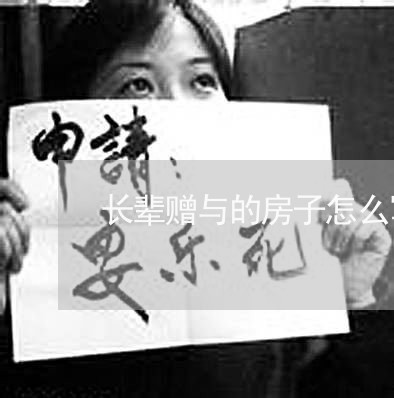 申請：
长辈赠与的房子怎么
安乐死